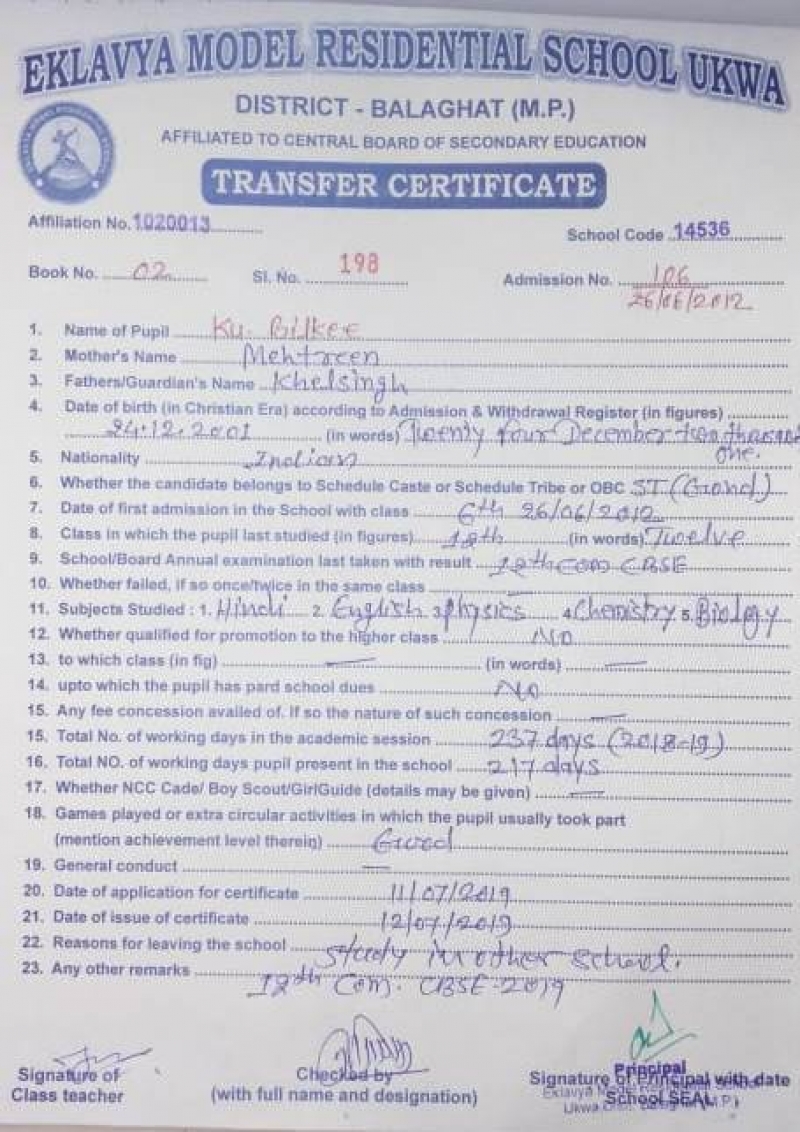 EKLAVYA MODEL RESIDENTIAL SCHOOL UKWA
DISTRICT - BALAGHAT (M.P.)
AFFILIATED TO CENTRAL BOARD OF SECONDARY EDUCATION
TRANSFER CERTIFICATE
Affiliation No. 1020013
School Code 14536
Book No. 02 Sl. No. 198 Admission No. 106
26/06/2012
1. Name of Pupil Ku. Bilkee
2. Mother's Name Mehtreen
3. Fathers/Guardian's Name Khelsingh
4. Date of birth (in Christian Era) according to Admission & Withdrawal Register (in figures)
24.12.2001 (in words) Twenty four December two thousand
one.
5. Nationality Indian
6. Whether the candidate belongs to Schedule Caste or Schedule Tribe or OBC ST (Gond)
7. Date of first admission in the School with class 6th 26/06/2012
8. Class in which the pupil last studied (in figures) 12th (in words) Twelve
9. School/Board Annual examination last taken with result 12th com CBSE
10. Whether failed, if so once/twice in the same class
11. Subjects Studied : 1. Hindi 2. English 3 physics 4 Chemistry 5. Biology
12. Whether qualified for promotion to the higher class No
13. to which class (in fig) — (in words) —
14. upto which the pupil has pard school dues No
15. Any fee concession availed of. If so the nature of such concession —
15. Total No. of working days in the academic session 237 days (2018-19)
16. Total NO. of working days pupil present in the school 217 days
17. Whether NCC Cade/ Boy Scout/GirlGuide (details may be given) —
18. Games played or extra circular activities in which the pupil usually took part
(mention achievement level therein) Good
19. General conduct —
20. Date of application for certificate 11/07/2019
21. Date of issue of certificate 12/07/2019
22. Reasons for leaving the school study in other school.
23. Any other remarks 12th Com. CBSE-2019
Signature of
Class teacher
Checked by
(with full name and designation)
Principal
Signature of Principal with date
School SEAL